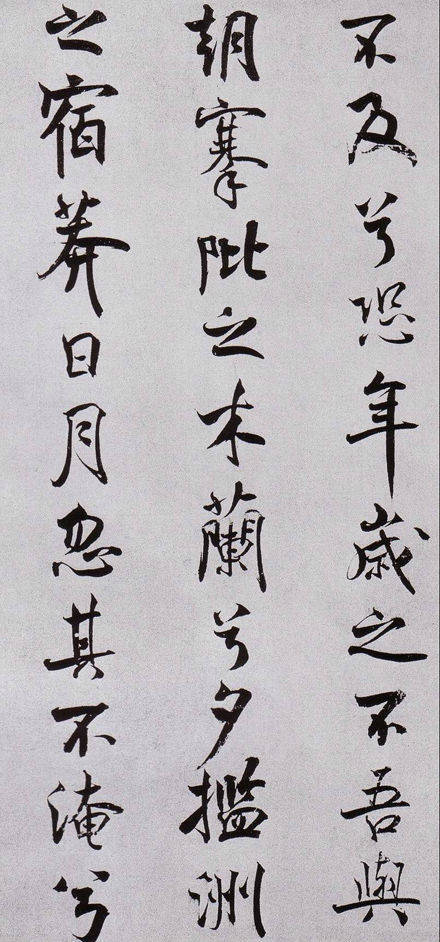 不及兮恐年歲之不吾與
朝搴阰之木蘭兮夕擥洲
之宿莽日月忽其不淹兮